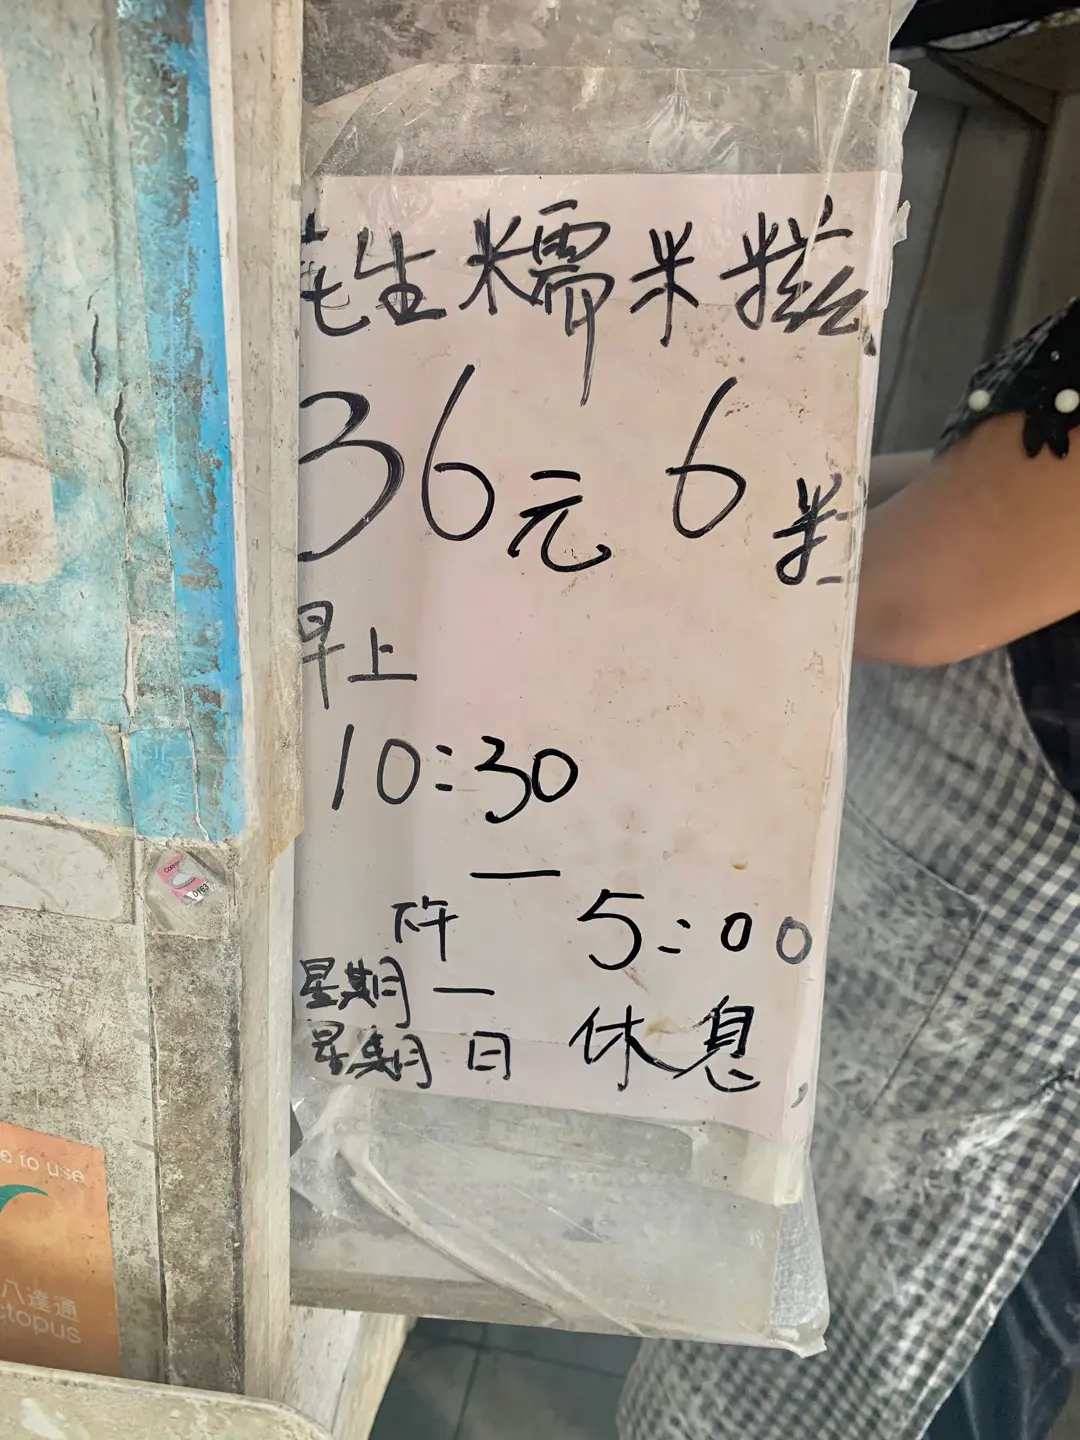 花生糯米糍
36元 6粒
早上
10:30
—
下午 5:00
星期一
星期日 休息
e to use
八達通
ctopus